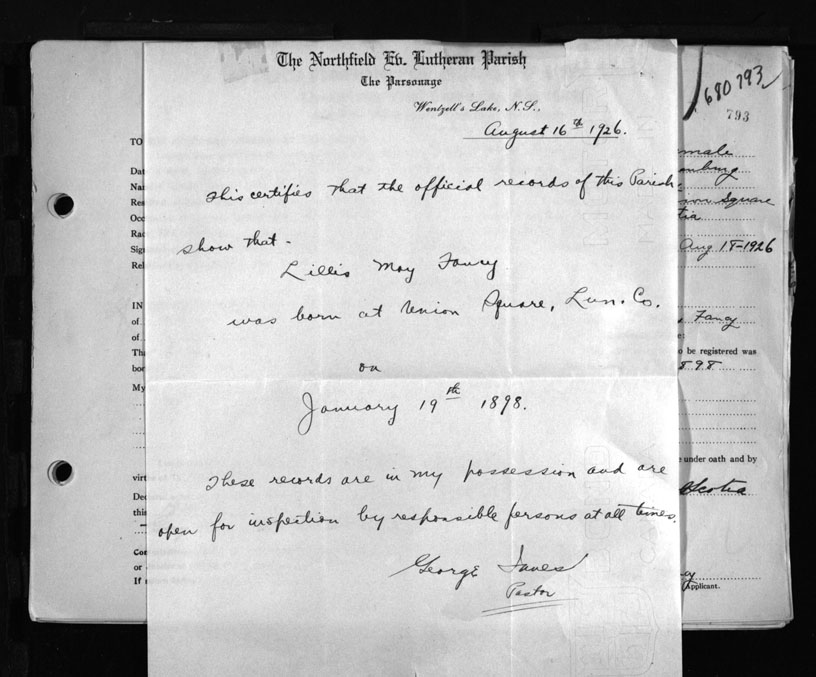 The Northfield Ev. Lutheran Parish
The Parsonage
Wentzell's Lake, N.S.,
August 16th 1926.
This certifies that the official records of this Parish
show that -
Lillis May Fancy
was born at Union Square, Lun. Co.
on
January 19th 1898.
These records are in my possession and are
open for inspection by responsible persons at all times.
George Innes
Pastor
680793
793
TO
Dat
Nam
Res
Occ
Rac
Sign
Rel
IN
of
of
Tha
bor
My
virt
Decl
this
Com
or
If
male
nburg
Square
tia
Aug 18-1926
Fancy
to be registered was
898
e under oath and by
Scotia
Applicant.